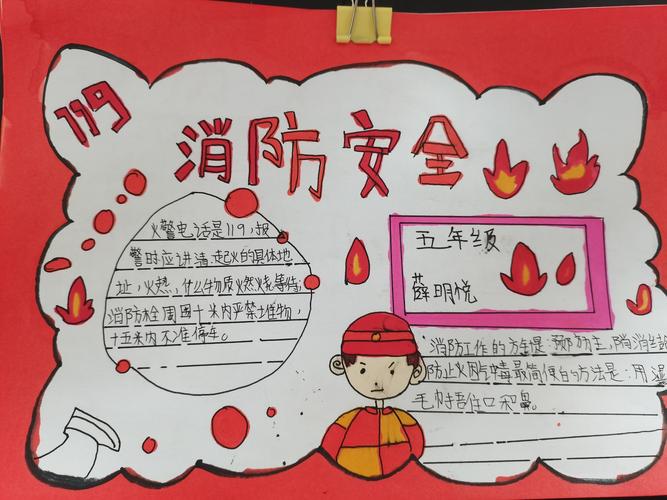 119
消防安全
火警电话是119,报
警时应讲清起火的具体地
址,火势,什么物质火然火尧等情,
消防栓周围十米内严禁堆物,
十五米内不准停车。
五年级
薛明悦
消防工作的方针是:预防为主,防消结
防止火因中毒最简便的方法是:用湿
毛巾捂住口和鼻。